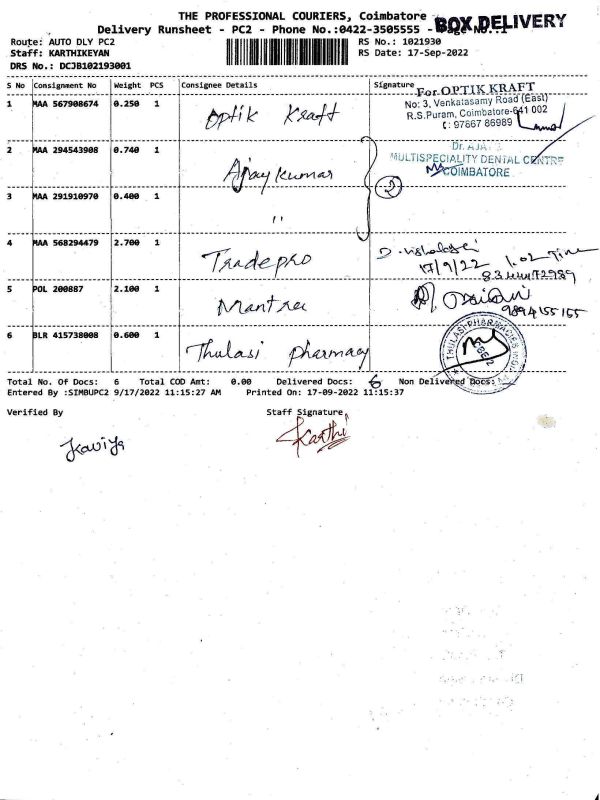 THE PROFESSIONAL COURIERS, Coimbatore
BOX DELIVERY
Delivery Runsheet - PC2 - Phone No.:0422-3505555 - Page No.:1
Route: AUTO DLY PC2
RS No.: 1021930
Staff: KARTHIKEYAN
RS Date: 17-Sep-2022
DRS No.: DCJB102193001
S No Consignment No Weight PCS Consignee Details Signature
1 MAA 567908674 0.250 1 Optik Kraft
For OPTIK KRAFT
No: 3, Venkatasamy Road (East)
R.S.Puram, Coimbatore-641 002
97867 86989
2 MAA 294543908 0.740 1 Ajay kumar
MULTISPECIALITY DENTAL CENTRE
COIMBATORE
3 MAA 291910970 0.400 1 "
2
4 MAA 568294479 2.700 1 Tradepro
17/9/22 1.02
5 POL 200887 2.100 1 Mantra
9894155155
6 BLR 415738008 0.600 1 Thulasi pharmacy
THULASI PHARMACIES
Total No. Of Docs: 6 Total COD Amt: 0.00 Delivered Docs: 6 Non Delivered Docs:
Entered By :SIMBUPC2 9/17/2022 11:15:27 AM Printed On: 17-09-2022 11:15:37
Verified By Staff Signature
Kaviya Karthi